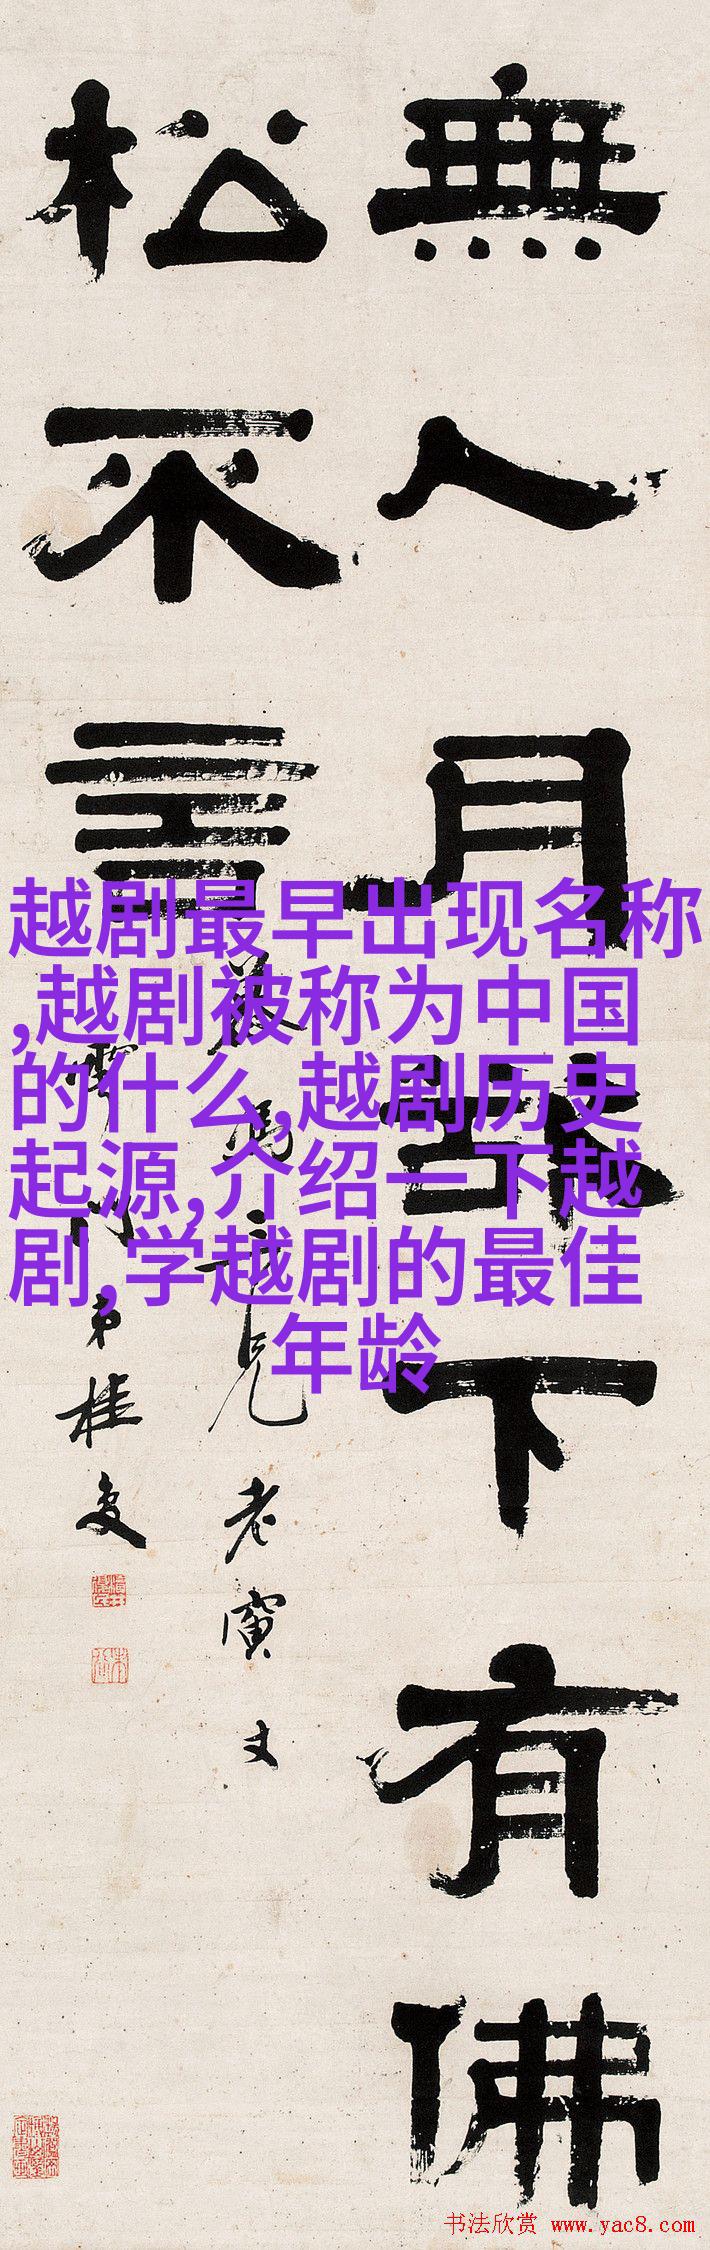 無人月下有佛
松不言
兄老寅丈
門弟桂
越剧最早出现名称
,越剧被称为中国
的什么,越剧历史
起源,介绍一下越
剧,学越剧的最佳
年龄
书法欣赏 www.yac8.com